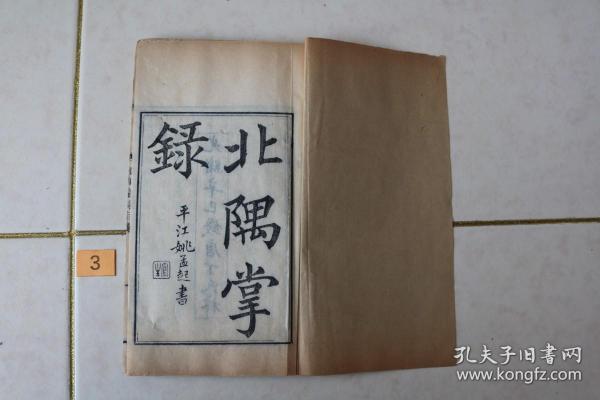 北隅掌
錄
平江姚孟起書
3
孔夫子旧書网
www.kongfz.com